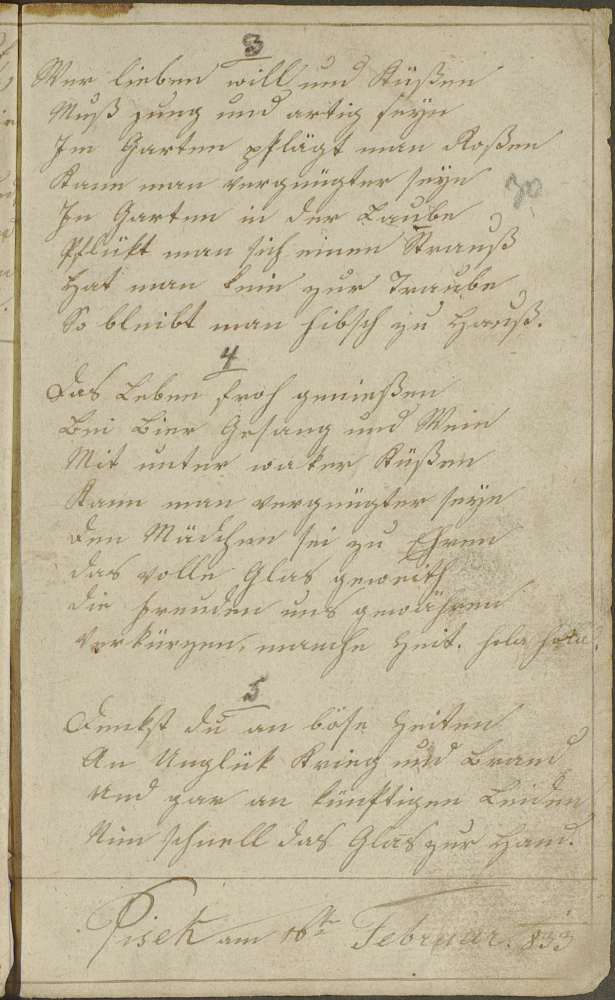 3
Wer lieben will und Küßen
Muß jung und artig seyn
Im Garten pflägt man Roßen
Kann man vergnügter seyn
30
In Garten in der Laube
Pflükt man sich einen Strauß
Hat man kein zur Traube
So bleibt man hibsch zu Hauß.
4
Das Leben froh genießen
Bei Bier Gesang und Wein
Mit unter waker Küßen
Kann man vergnügter seyn
Den Mädchen sei zu Ehren
das volle Glas geweith
die Freuden uns gewähren
Verkürzen, manche Zeit. hola hola.
5
Denkst du an böse Zeiten
An Unglük Krieg und Brand
Und gar an künftigen Leiden
Nim schnell das Glas zur Hand.
Pisek am 16te Februar. 833